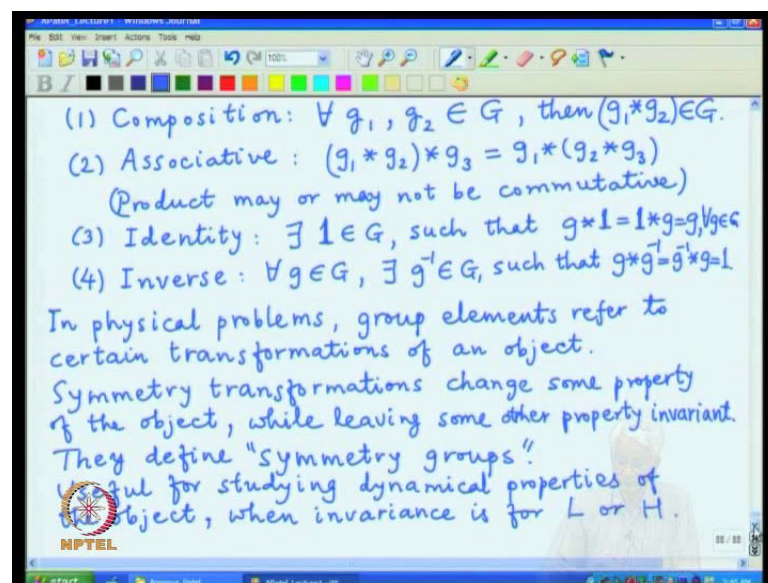 XPatel_Lecture01 - Windows Journal
File Edit View Insert Actions Tools Help
100%
B I
(1) Composition: ∀ g₁, g₂ ∈ G, then (g₁*g₂)∈G.
(2) Associative: (g₁*g₂)*g₃ = g₁*(g₂*g₃)
(Product may or may not be commutative)
(3) Identity: ∃ 1∈G, such that g*1=1*g=g,∀g∈G
(4) Inverse: ∀g∈G, ∃ g⁻¹∈G, such that g*g⁻¹=g⁻¹*g=1
In physical problems, group elements refer to
certain transformations of an object.
Symmetry transformations change some property
of the object, while leaving some other property invariant.
They define "symmetry groups".
Useful for studying dynamical properties of
the object, when invariance is for L or H.
NPTEL
88 / 88
start